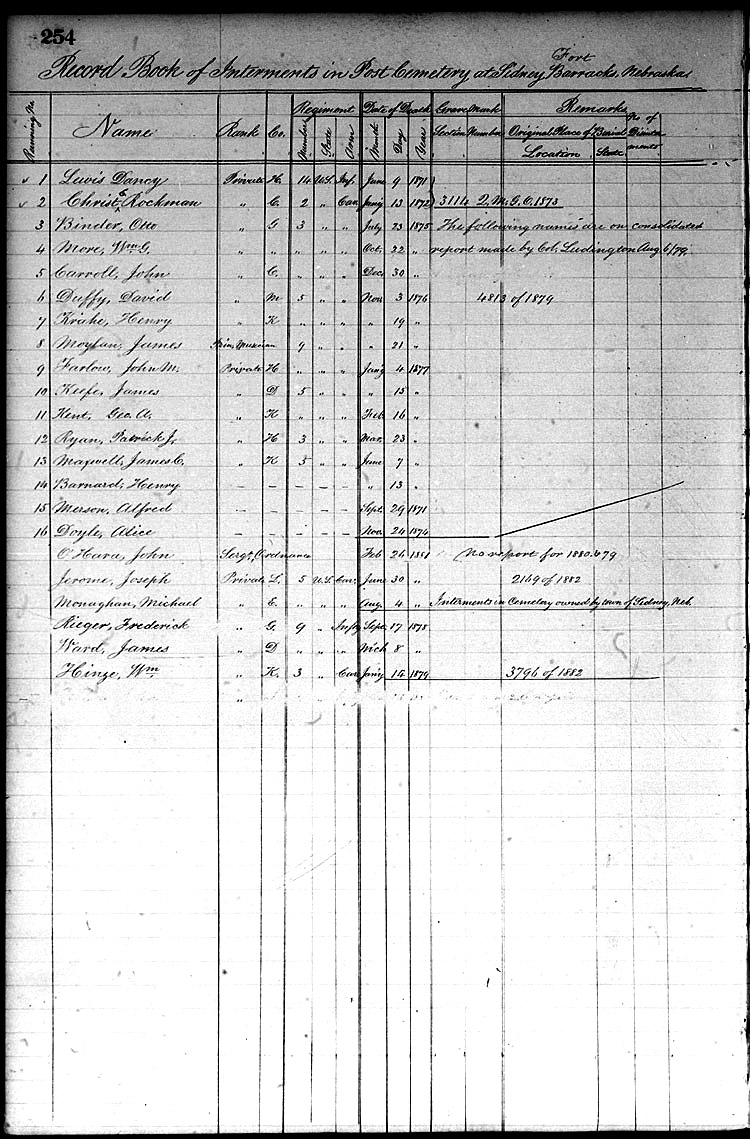 254
Fort
Record Book of Interments in Post Cemetery at Sidney Barracks, Nebraska
Running No. Name Rank Co. Regiment Date of Death Grave Mark Remarks
Number State Arm Month Day Year Section Number Original Place of Burial No. of Disinterments
Location State
✓ 1 Lewis Dancy Private H. 14 U.S. Inf. June 9 1871
✓ 2 Christ E Rockman " C. 2 " Cav. Jan'y 13 1872 3114 Q.M.G.O. 1873
3 Binder, Otto " G 3 " " July 23 1875 The following names are on consolidated
4 More, Wm G. " " " " " Oct. 22 " report made by Col. Ludington Aug 6/79.
5 Carroll, John " C. " " " Dec. 30 "
6 Duffy, David " M 5 " " Nov. 3 1876 4813 of 1879
7 Krake, Henry " K " " " " 19 "
8 Moylan, James Prin. Musician 9 " " " 21 "
9 Farlow, John M. Private H " " " Jan'y 4 1877
10 Keefe, James " D 5 " " " 15 "
11 Kent, Geo. A. " K " " " Feb. 16 "
12 Ryan, Patrick J. " H 3 " " Mar. 23 "
13 Maxwell, James C. " K 5 " " June 7 "
14 Barnard, Henry - - - - - " 13 "
15 Merson, Alfred - - - - - Sept. 29 1871
16 Doyle, Alice - - - - - Nov. 24 1874
O'Hara, John Sergt. Ordnance Feb 26 1881 No report for 1880 & 79
Jerome, Joseph Private L. 5 U.S. Cav. June 30 " 2169 of 1882
Monaghan, Michael " E. " " " Aug. 4 " Interments in Cemetery owned by town of Sidney, Neb.
Rieger, Frederick " G. 9 " Inf'ty Sept. 17 1878
Ward, James " D " " " Mch 8 "
Hinze, Wm " K. 3 " Cav. Jan'y 14 1879 3796 of 1882
" "